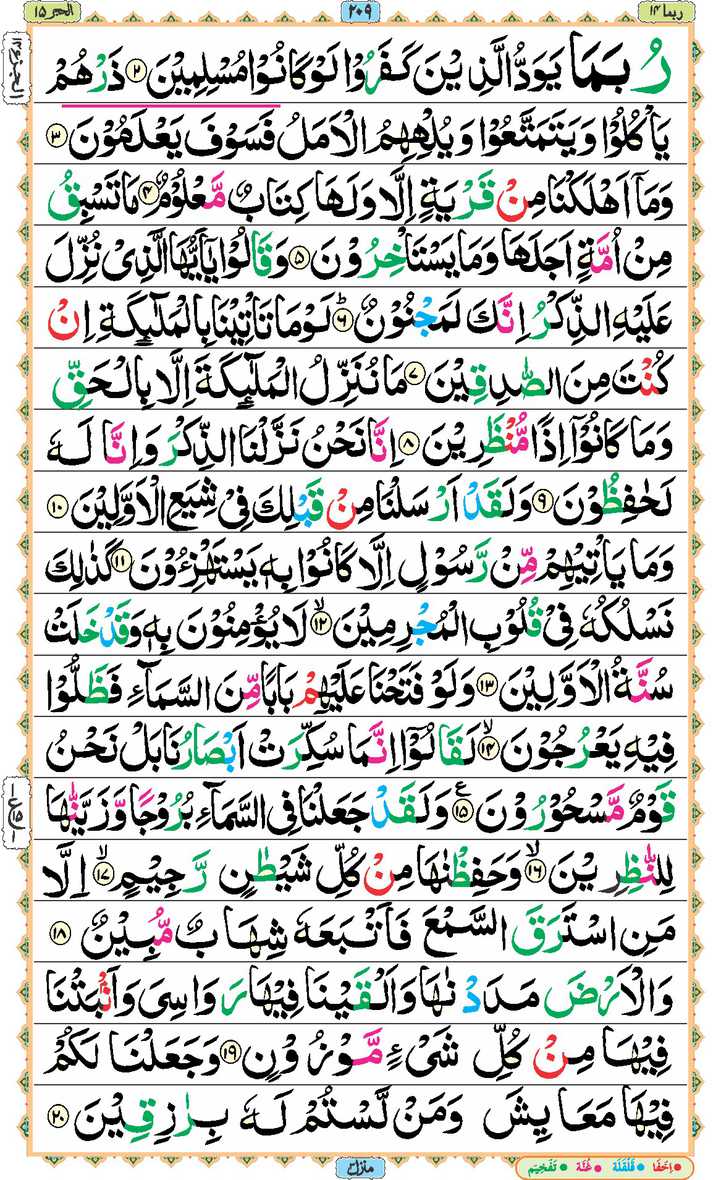 ربما ١٤
٢٠٩
الحجر ١٥
رُبَمَا يَوَدُّ الَّذِيْنَ كَفَرُوْا لَوْ كَانُوْا مُسْلِمِيْنَ ٢ ذَرْهُمْ
يَاْكُلُوْا وَيَتَمَتَّعُوْا وَيُلْهِهِمُ الْاَمَلُ فَسَوْفَ يَعْلَمُوْنَ ٣
وَمَاۤ اَهْلَكْنَا مِنْ قَرْيَةٍ اِلَّا وَلَهَا كِتَابٌ مَّعْلُوْمٌ ٤ مَا تَسْبِقُ
مِنْ اُمَّةٍ اَجَلَهَا وَمَا يَسْتَاْخِرُوْنَ ٥ وَقَالُوْا يٰۤاَيُّهَا الَّذِيْ نُزِّلَ
عَلَيْهِ الذِّكْرُ اِنَّكَ لَمَجْنُوْنٌ ؕ ٦ لَوْ مَا تَاْتِيْنَا بِالْمَلٰٓئِكَةِ اِنْ
كُنْتَ مِنَ الصّٰدِقِيْنَ ٧ مَا نُنَزِّلُ الْمَلٰٓئِكَةَ اِلَّا بِالْحَقِّ
وَمَا كَانُوْۤا اِذًا مُّنْظَرِيْنَ ٨ اِنَّا نَحْنُ نَزَّلْنَا الذِّكْرَ وَاِنَّا لَهٗ
لَحٰفِظُوْنَ ٩ وَلَقَدْ اَرْسَلْنَا مِنْ قَبْلِكَ فِيْ شِيَعِ الْاَوَّلِيْنَ ١٠
وَمَا يَاْتِيْهِمْ مِّنْ رَّسُوْلٍ اِلَّا كَانُوْا بِهٖ يَسْتَهْزِءُوْنَ ١١ كَذٰلِكَ
نَسْلُكُهٗ فِيْ قُلُوْبِ الْمُجْرِمِيْنَ ۙ ١٢ لَا يُؤْمِنُوْنَ بِهٖ وَقَدْ خَلَتْ
سُنَّةُ الْاَوَّلِيْنَ ١٣ وَلَوْ فَتَحْنَا عَلَيْهِمْ بَابًا مِّنَ السَّمَآءِ فَظَلُّوْا
فِيْهِ يَعْرُجُوْنَ ۙ ١٤ لَقَالُوْۤا اِنَّمَا سُكِّرَتْ اَبْصَارُنَا بَلْ نَحْنُ
قَوْمٌ مَّسْحُوْرُوْنَ ١٥ ع وَلَقَدْ جَعَلْنَا فِي السَّمَآءِ بُرُوْجًا وَّزَيَّنّٰهَا
لِلنّٰظِرِيْنَ ۙ ١٦ وَحَفِظْنٰهَا مِنْ كُلِّ شَيْطٰنٍ رَّجِيْمٍ ۙ ١٧ اِلَّا
مَنِ اسْتَرَقَ السَّمْعَ فَاَتْبَعَهٗ شِهَابٌ مُّبِيْنٌ ١٨
وَالْاَرْضَ مَدَدْنٰهَا وَاَلْقَيْنَا فِيْهَا رَوَاسِيَ وَاَنْۢبَتْنَا
فِيْهَا مِنْ كُلِّ شَيْءٍ مَّوْزُوْنٍ ١٩ وَجَعَلْنَا لَكُمْ
فِيْهَا مَعَايِشَ وَمَنْ لَّسْتُمْ لَهٗ بِرٰزِقِيْنَ ٢٠
منزل ٣
اِخْفَا • قَلْقَلَة • غُنَّة • تَفْخِيْم